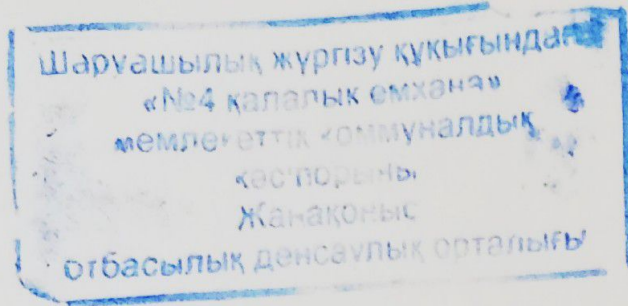 Шаруашылық жүргізу құқығындағы
«№4 қалалық емхана»
мемлекеттік коммуналдық
кәсіпорыны
Жанақоныс
отбасылық денсаулық орталығы